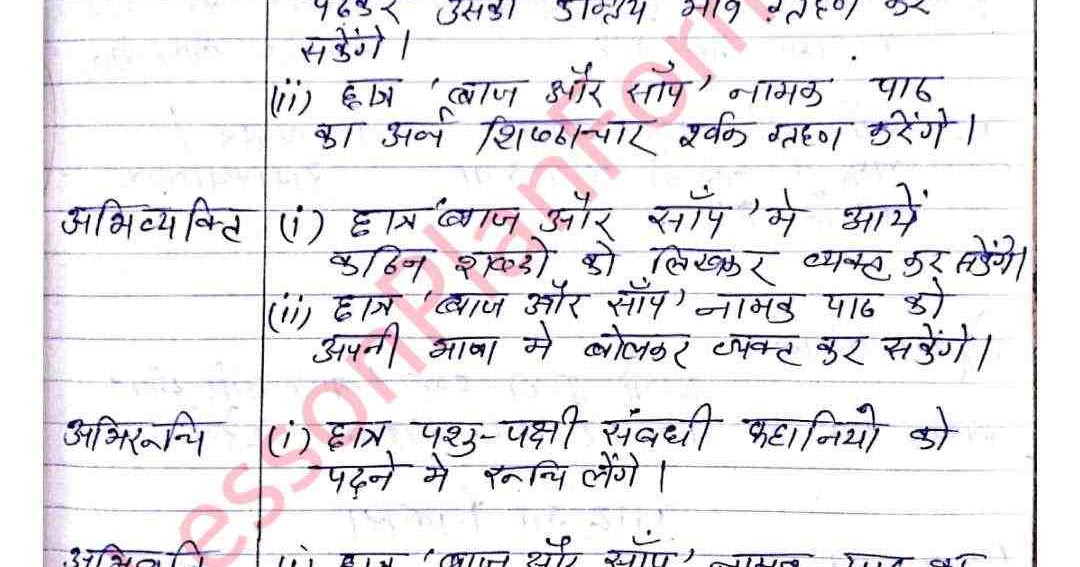 पढकर उसका
सकेंगे।
(ii) छात्र 'बाज और साँप' नामक पाठ
का अर्थ शिष्टाचार पूर्वक ग्रहण करेंगे।
अभिव्यक्ति (i) छात्र 'बाज और साँप' मे आयें
कठिन शब्दो को लिखकर व्यक्त कर सकेंगे।
(ii) छात्र 'बाज और साँप' नामक पाठ को
अपनी भाषा मे बोलकर व्यक्त कर सकेंगे।
अभिरूचि (i) छात्र पशु-पक्षी संबधी कहानियो को
पढ़ने मे रूचि लेंगे।
(i) छात्र 'बाज और साँप' नामक पाठ का
essonPlanForm